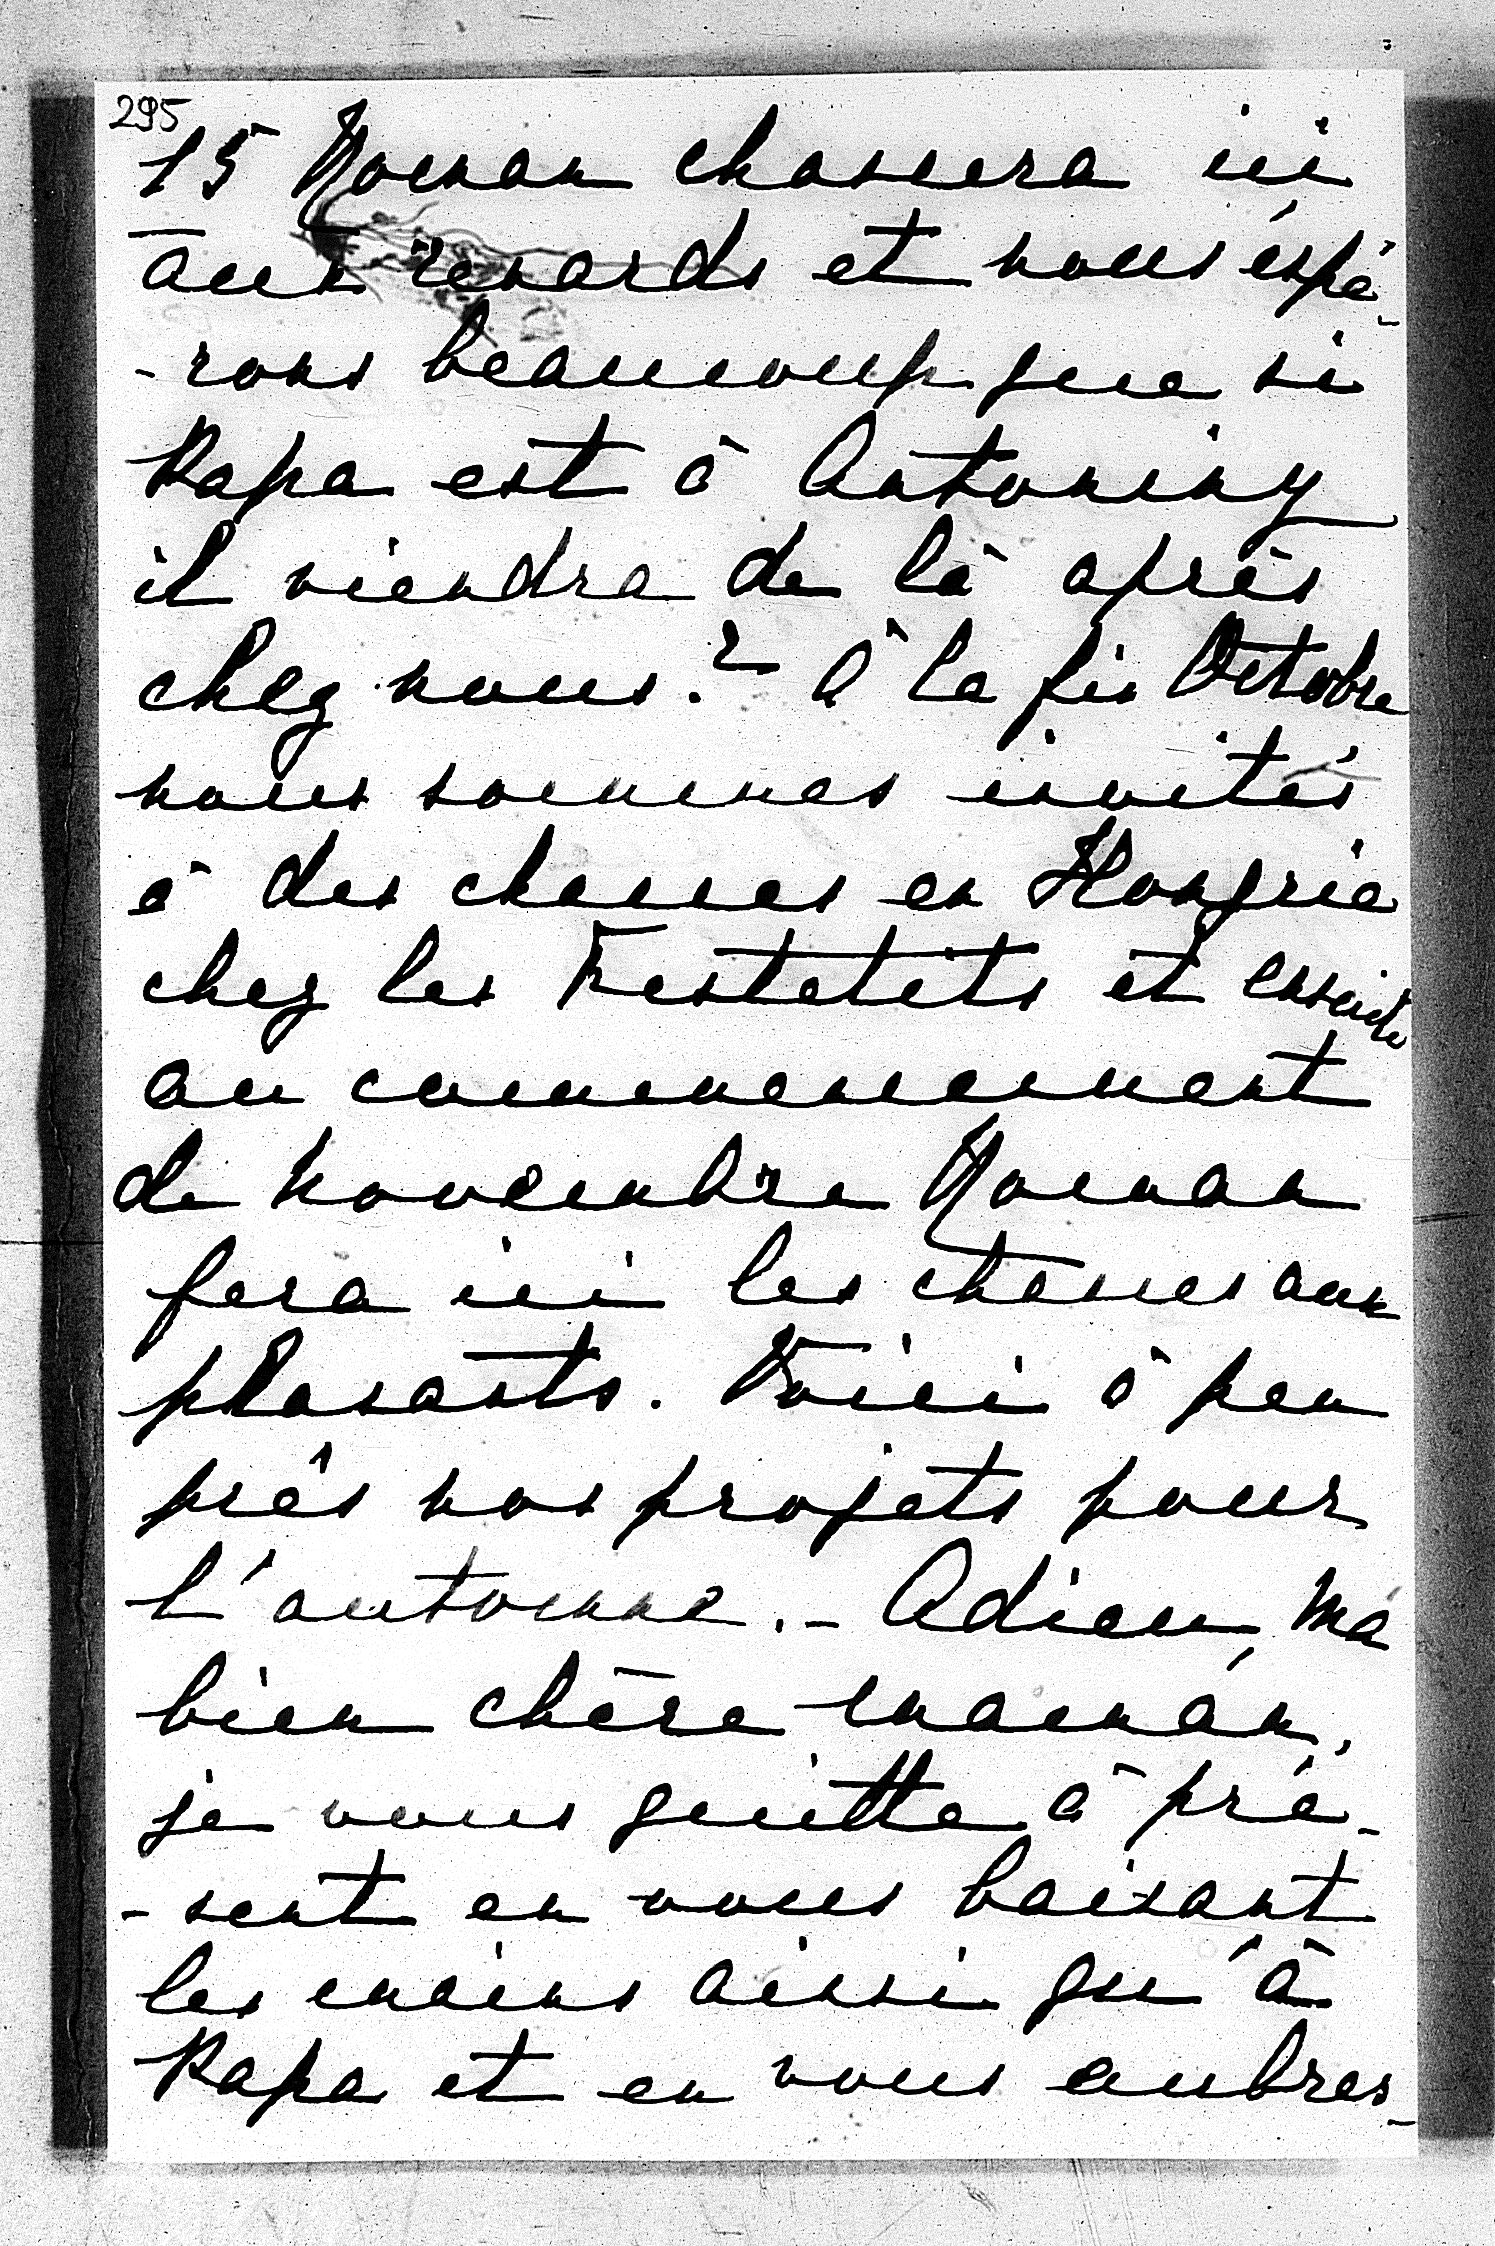 295
15 Roman chassera ici
aux renards et nous espé-
-rons beaucoup que si
Papa est à Antoniny
il viendra de là après
chez nous.? À la fin Octobre
nous sommes invités
à des chasses en Hongrie
chez les Festetits et ensuite
au commencement
de Novembre Roman
fera ici les chasses aux
phasants. Voici à peu
près nos projets pour
l'automne.- Adieu, ma
bien chère maman,
je vous quitte à pré-
-sent en vous baisant
les mains ainsi qu'à
Papa et en vous embras-